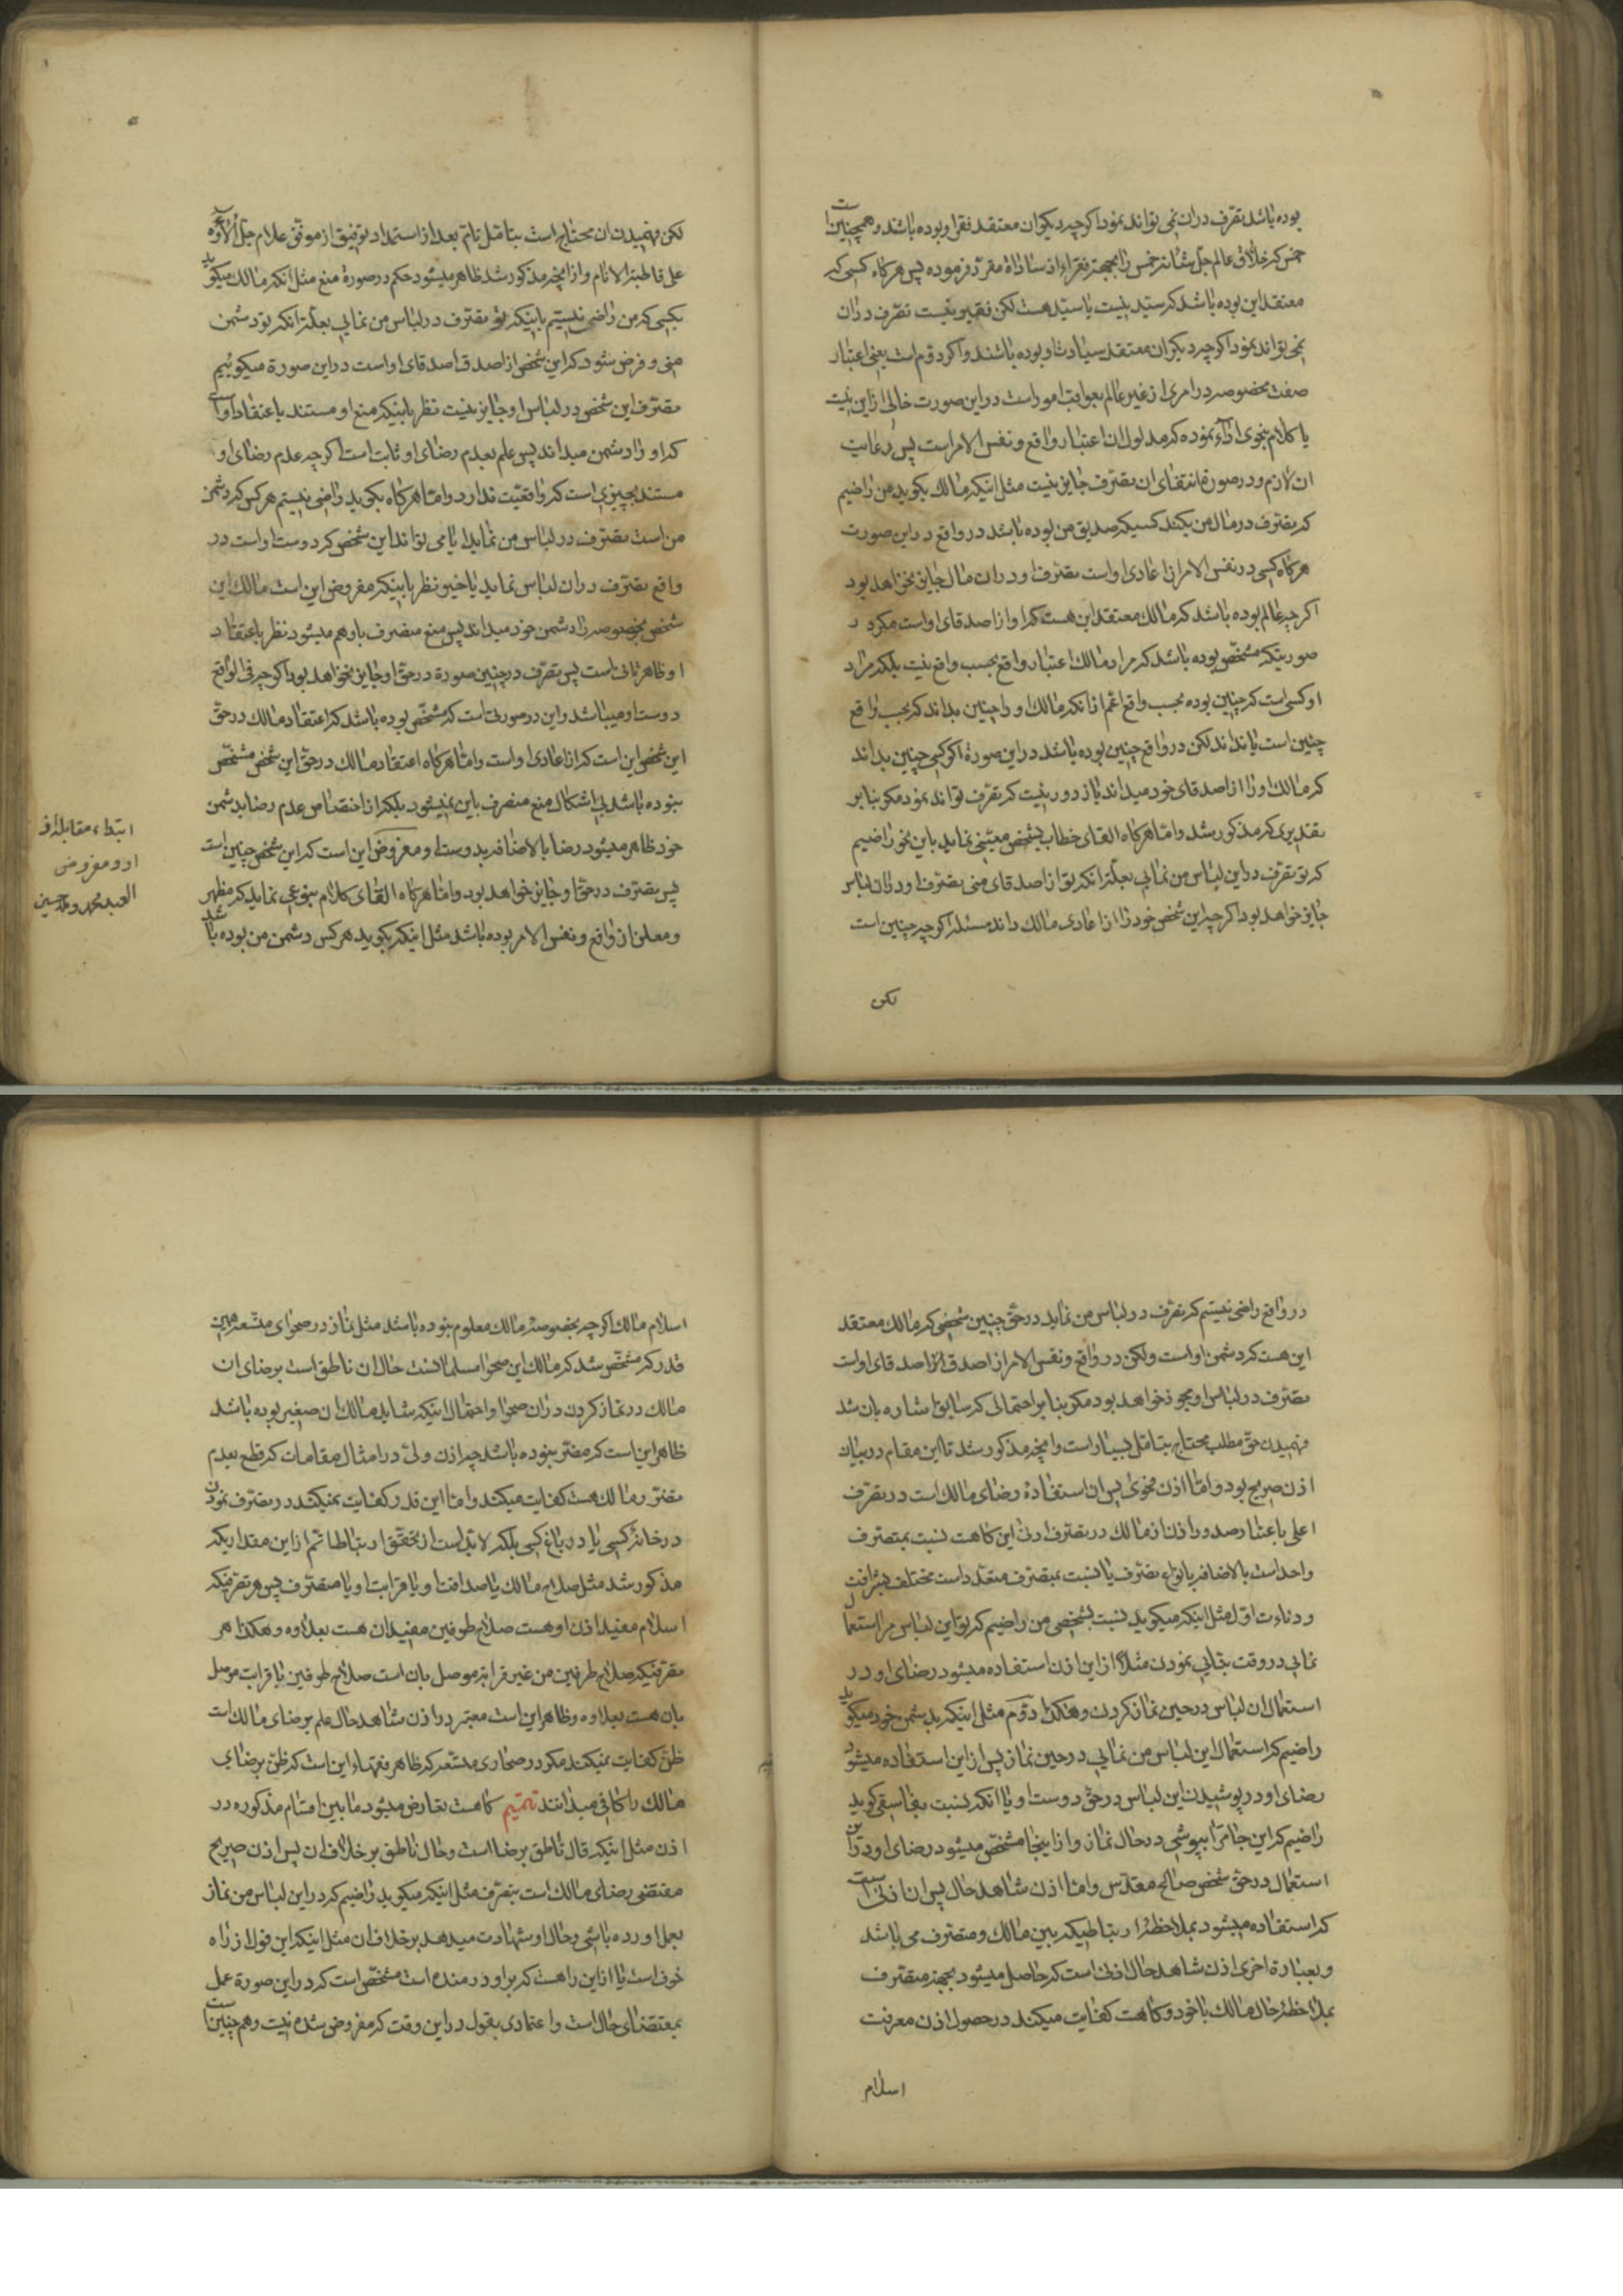 بوده باشد تصرف در ان نمی تواند نمود اکرچه دیکران معتقد فقر او بوده باشند و همچنین است
خمس که خلاق عالم جل شانه خمس را بجهة فقراء از سادات مقرر فرموده پس هرکاه کسی که
معتقد این بوده باشد که سید نیست یا سید هست لکن فقیر نیست تصرف در ان
نمی تواند نمود اکرچه دیکران معتقد سیادت او بوده باشند و اکر دوم است یعنی اعتبار
صفت مخصوصه در امری از غیر عالم بعواقب امور است در این صورت خالی از این نیست
یا کلام بنحوی اداء نموده که مدلول ان اعتبار واقع و نفس الامر است پس رعایت
ان لازم و در صورة انتفای ان تصرف جایز نیست مثل اینکه مالک بکوید من راضیم
که تصرف در مال من بکند کسیکه صدیق من بوده باشد در واقع در این صورت
هرکاه کسی در نفس الامر از اعادی او است تصرف او در ان مال جایز نخواهد بود
اکرچه عالم بوده باشد که مالک معتقد این هست که او از اصدقای او است مکر در
صورتیکه مشخص بوده باشد که مراد مالک اعتبار واقع بحسب واقع نیست بلکه مراد
او کسی است که چنین بوده بحسب واقع اعم از انکه مالک او را چنین بداند که بحسب واقع
چنین است یا نداند لکن در واقع چنین بوده باشد در این صورة اکر کسی چنین بداند
که مالک او را از اصدقای خود میداند باز دور نیست که تصرف تواند نمود مکر بنابر
تقدیری که مذکور شد و اما هرکاه القای خطاب بشخص معینی نماید باین نحو راضیم
که تو تصرف در این لباس من نمائی بعلة انکه تو از اصدقای منی تصرف او در ان لباس
جایز خواهد بود اکرچه این شخص خود را از اعادی مالک داند مسئله اکرچه چنین است
لکن
لکن فهمیدن ان محتاج است بتامل تام بعد از استمداد توفیق از موفق علام جل الاؤه
علی قاطبة الانام و از انچه مذکور شد ظاهر میشود حکم در صورة منع مثل انکه مالک میکوید
بکسی که من راضی نیستم باینکه تو تصرف در لباس من نمائی بعلة انکه تو دشمن
منی و فرض شود که این شخص از اصدق اصدقای او است در این صورة میکوئیم
تصرف این شخص در لباس او جایز نیست نظر باینکه منع او مستند باعتقاد او است
که او را دشمن میداند پس علم بعدم رضای او ثابت است اکرچه عدم رضای او
مستند بچیزی است که واقعیت ندارد و اما هرکاه بکوید راضی نیستم هر کس که دشمن
من است تصرف در لباس من نماید ایا می تواند این شخص که دوست او است در
واقع تصرف در ان لباس نماید یا خیر نظر باینکه مفروض این است مالک این
شخص بخصوصه را دشمن خود میداند پس منع منصرف باو هم میشود نظر باعتقاد
او ظاهر ثانی است پس تصرف در چنین صورة در حق او جایز نخواهد بود اکرچه فی الواقع
دوست او میباشد و این در صورتی است که مشخص بوده باشد که اعتقاد مالک در حق
این شخص این است که از اعادی او است و اما هرکاه اعتقاد مالک در حق این شخص مشخص
نبوده باشد بی اشکال منع منصرف باین نمیشود بلکه از اختصاص عدم رضا بدشمن
خود ظاهر میشود رضا بالاضافه بدوست او مفروض این است که این شخص چنین است
پس تصرف در حق او جایز خواهد بود و اما هرکاه القای کلام بنوعی نماید که مظهر
و معلن از واقع و نفس الامر بوده باشد مثل اینکه بکوید هر کس دشمن من بوده باشد
ابتداء مقابله از
مفروض
العبد محمد
در واقع راضی نیستم که تصرف در لباس من نماید در حق چنین شخصی که مالک معتقد
این هست که دشمن او است ولکن در واقع و نفس الامر از اصدق اصدقای او است
تصرف در لباس او مجوز نخواهد بود مکر بنابر احتمالی که سابق اشاره بان شد
فهمیدن حق مطلب محتاج بتامل بسیار است و انچه مذکور شد تا این مقام در بیان
اذن صریح بود و اما اذن فحوی پس ان استفاده رضای مالک است در تصرف
اعلی باعتبار صدور اذن از مالک در تصرف ادنی این کاهست نسبت بمتصرف
واحد است بالاضافه بانواع تصرف یا نسبت بمتصرف متعدد است مختلف بشرافت
و دناءت اول مثل اینکه میکوید نسبت بشخصی من راضیم که تو این لباس مرا استعمال
نمائی در وقت بنائی نمودن مثلا از این اذن استفاده میشود رضای او در
استعمال ان لباس در حین نماز کردن و هکذا دوم مثل اینکه بدشمن خود میکوید
راضیم که استعمال این لباس من نمائی در حین نماز پس از این استفاده میشود
رضای او در پوشیدن این لباس در حق دوست او یا انکه نسبت بفاسقی کوید
راضیم که این جامه را بپوشی در حال نماز و از اینجا مشخص میشود رضای او در این
استعمال در حق شخص صالح مقدس و اما اذن شاهد حال پس ان اذنی است
که استفاده میشود بملاحظه ارتباطیکه بین مالک و متصرف می باشد
و بعبارة اخری اذن شاهد حال اذنی است که حاصل میشود بجهة متصرف
بملاحظه حال مالک با خود و کاهست کفایت میکند در حصول اذن معرفت
اسلام
اسلام مالک اکرچه بخصوصه مالک معلوم نبوده باشد مثل نماز در صحرای متسعه همین
قدر که مشخص شد که مالک این صحرا مسلمانست حال ان ناطق است برضای ان
مالک در نماز کردن در ان صحرا و احتمال اینکه شاید مالک ان صغیر بوده باشد
ظاهر این است که مضر نبوده باشد چه اذن ولی در امثال مقامات که قطع بعدم
تضرر مالک هست کفایت میکند و اما این قدر کفایت نمیکند در تصرف نمودن
در خانه کسی یا در باغ کسی بلکه لابد است از تحقق ارتباط اتم از این مقداریکه
مذکور شد مثل صلاح مالک یا صداقت او یا قرابت او یا متصرف پس هر تصرفیکه
اسلام مفید اذن او هست صلاح طرفین مفید ان هست بعلاوه و هکذا هر
تصرفیکه صلاح طرفین من غیر قرابة موصل بان است صلاح طرفین با قرابت موصل
بان هست بعلاوه و ظاهر این است معتبر در اذن شاهد حال علم برضای مالک است
ظن کفایت نمیکند مکر در صحاری متسعه که ظاهر فقهاء این است که ظن برضای
مالک را کافی میدانند تتمیم کاهست تعارض میشود ما بین اقسام مذکوره در
اذن مثل اینکه قال ناطق برضا است و حال ناطق بر خلاف ان پس اذن صریح
مقتضی رضای مالک است بتصرف مثل اینکه میکوید راضیم که در این لباس من نماز
بعمل اورده باشی و حال او شهادت میدهد بر خلاف ان مثل اینکه این قول از راه
خوف است یا از این راه هست که بر او در مانده است مشخص است که در این صورة عمل
بمقتضای حال است و اعتمادی بقول در این وقت که مفروض شده نیست و هم چنین است